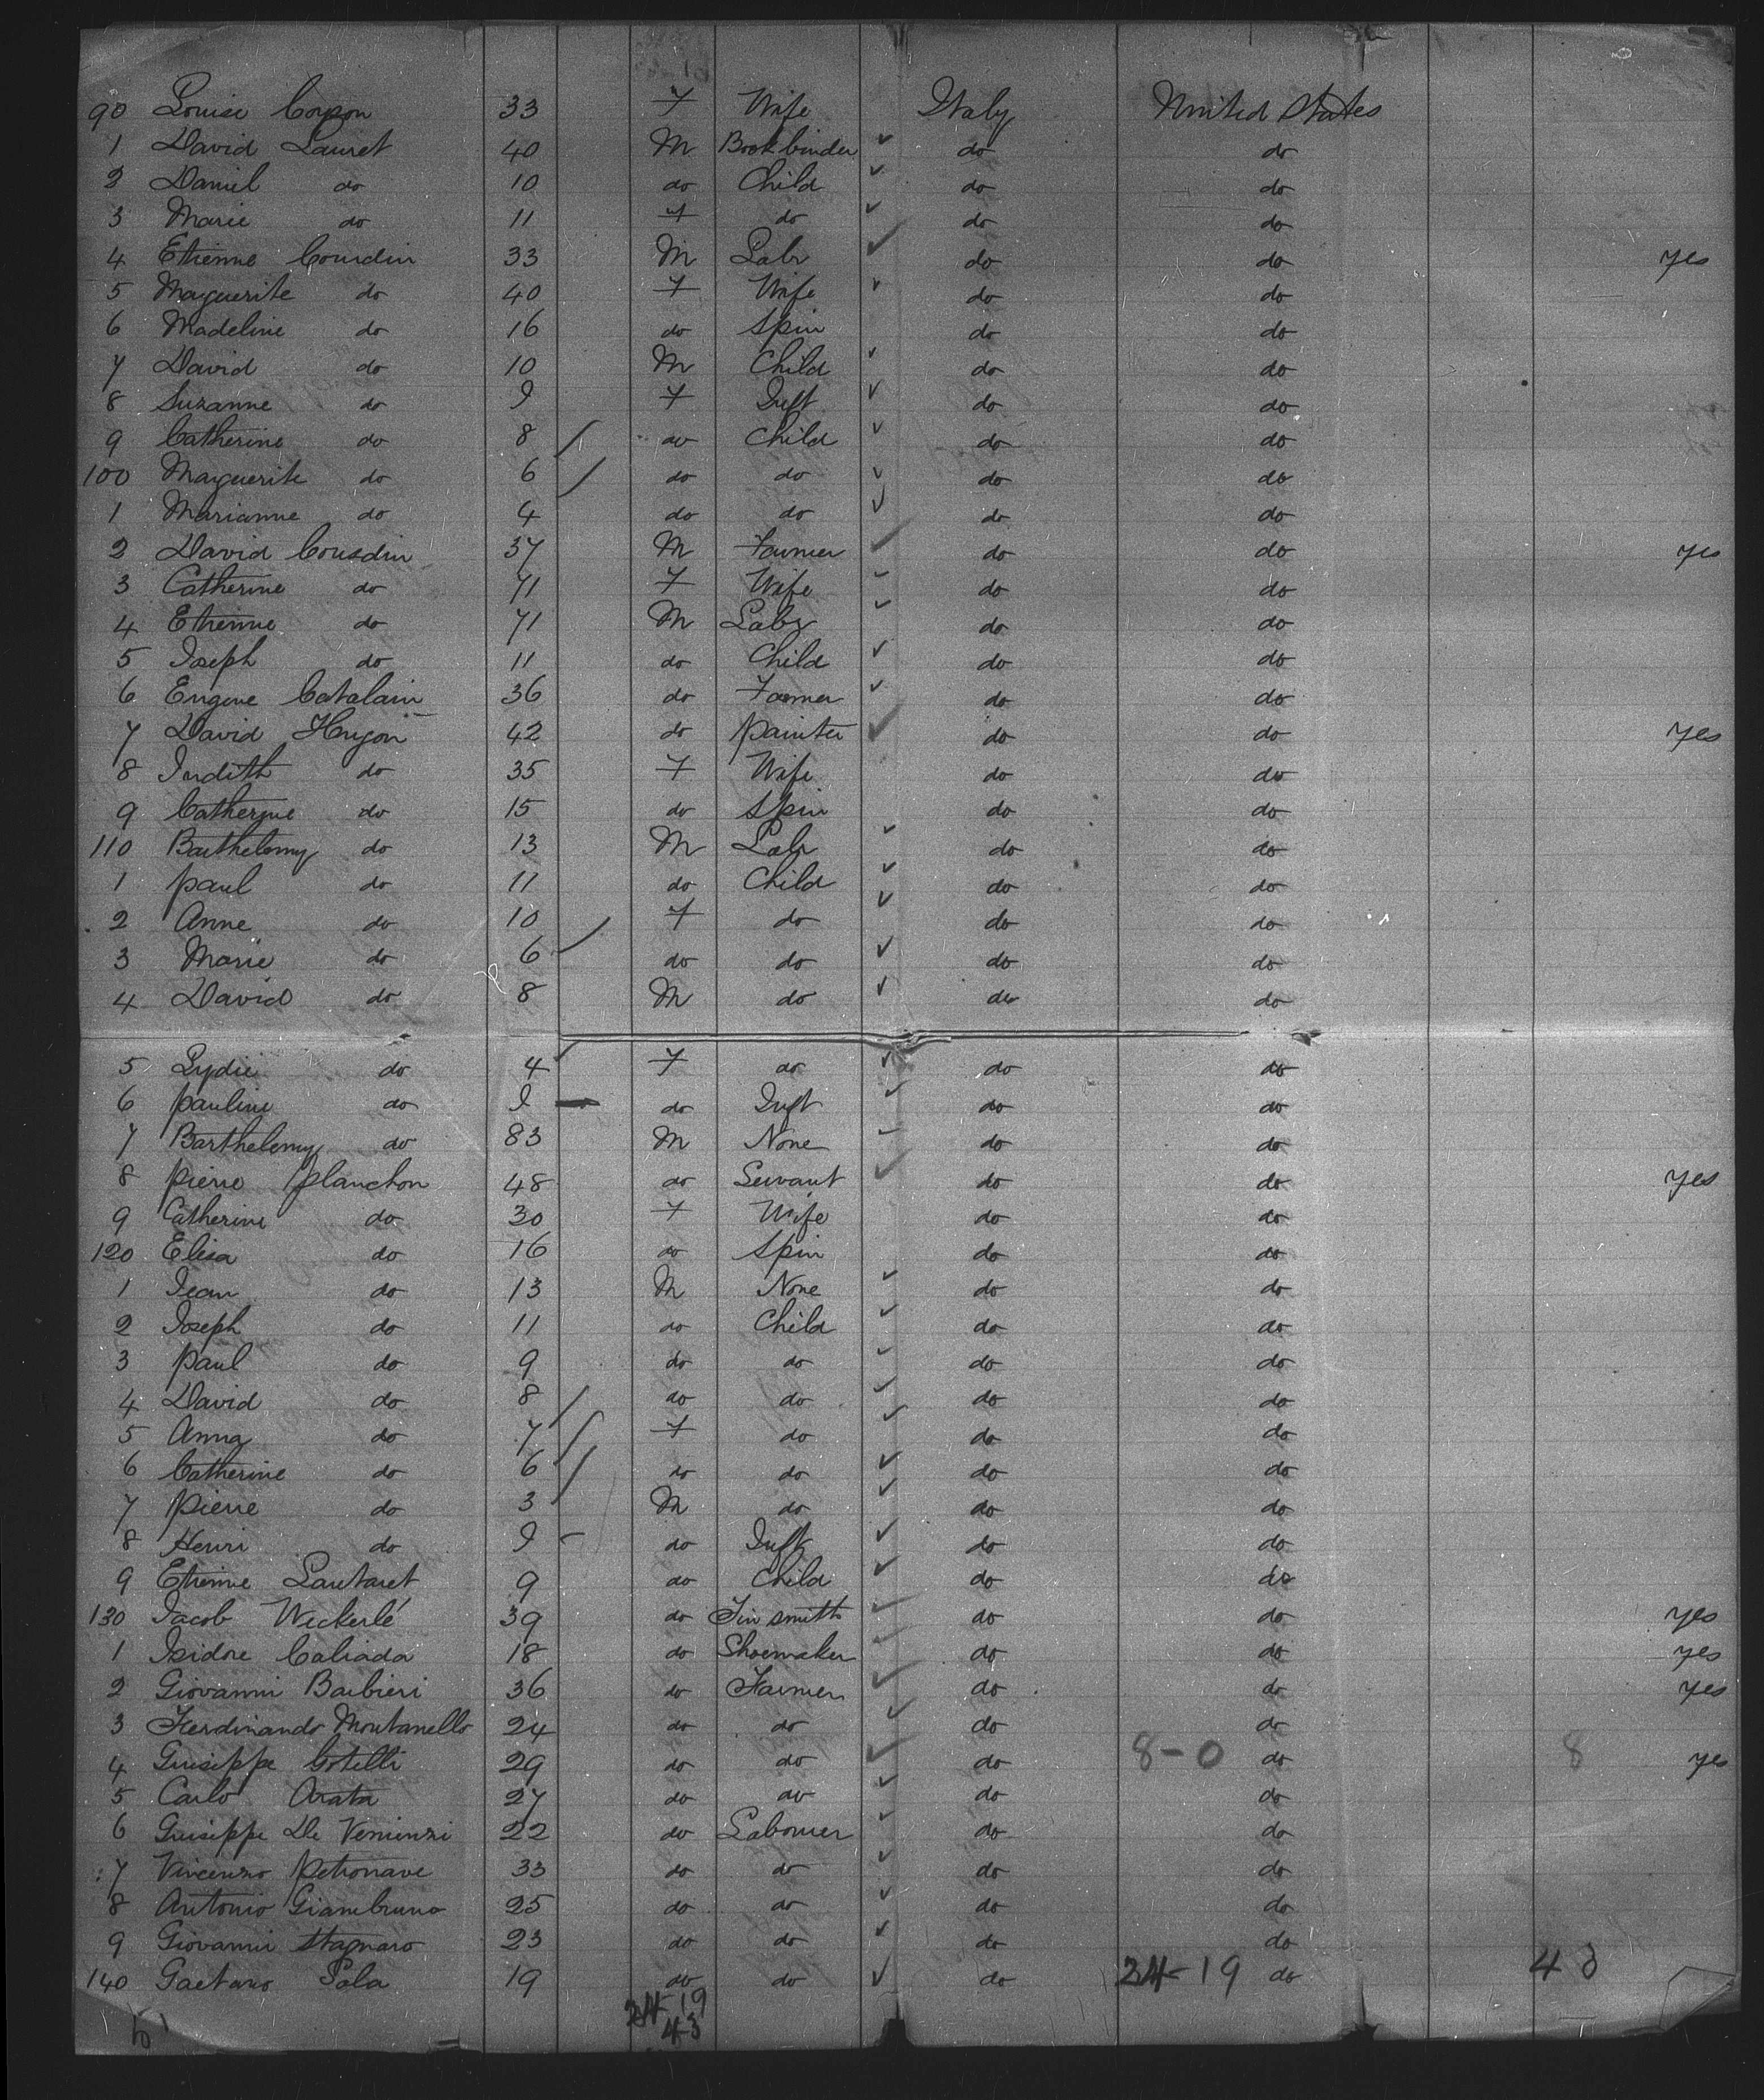 90 Louise Coupon 33 F Wife Italy United States
1 David Lauret 40 M Bookbinder ✓ do do
2 Daniel do 10 do Child ✓ do do
3 Marie do 11 F do ✓ do do
4 Etienne Courdin 33 M Labr ✓ do do yes
5 Maguerite do 40 F Wife ✓ do do
6 Madeline do 16 do Spin do do
7 David do 10 M Child ✓ do do
8 Suzanne do 9 F Inft ✓ do do
9 Catherine do 8 do Child ✓ do do
100 Maguerite do 6 do do ✓ do do
1 Marianne do 4 do do ✓ do do
2 David Cousdin 37 M Farmer ✓ do do yes
3 Catherine do 71 F Wife ✓ do do
4 Etienne do 71 M Labr ✓ do do
5 Joseph do 11 do Child ✓ do do
6 Eugene Catalain 36 do Farmer ✓ do do
7 David Hugon 42 do Painter ✓ do do yes
8 Judith do 35 F Wife do do
9 Catherine do 15 do Spin do do
110 Barthelemy do 13 M Labr ✓ do do
1 Paul do 11 do Child ✓ do do
2 Anne do 10 F do ✓ do do
3 Marie do 6 do do ✓ do do
4 David do 8 M do ✓ do do
5 Lydie do 4 F do ✓ do do
6 Pauline do 9 do Inft ✓ do do
7 Barthelemy do 83 M None ✓ do do
8 Pierre Planchon 48 do Servant ✓ do do yes
9 Catherine do 30 F Wife do do
120 Elisa do 16 do Spin do do
1 Jean do 13 M None ✓ do do
2 Joseph do 11 do Child ✓ do do
3 Paul do 9 do do ✓ do do
4 David do 8 do do ✓ do do
5 Anna do 7 F do ✓ do do
6 Catherine do 6 do do ✓ do do
7 Pierre do 3 M do ✓ do do
8 Henri do 9 do Inft ✓ do do
9 Etienne Lautaret 9 do Child ✓ do do
130 Jacob Weckerlé 39 do Tin smith ✓ do do yes
1 Isidore Caliada 18 do Shoemaker ✓ do do yes
2 Giovanni Barbieri 36 do Farmer ✓ do do yes
3 Ferdinando Montanello 24 do do ✓ do do
4 Guiseppe Cotelli 29 do do ✓ do 8-0 do 8 yes
5 Carlo Arata 27 do do ✓ do do
6 Guiseppe De Venienzi 22 do Labourer ✓ do do
7 Vincenzo Petronave 33 do do ✓ do do
8 Antonio Giambruno 25 do do ✓ do do
9 Giovanni Stagnaro 23 do do ✓ do do
140 Gaetano Sala 19 do do ✓ do 24-19 do 43
24-19
43